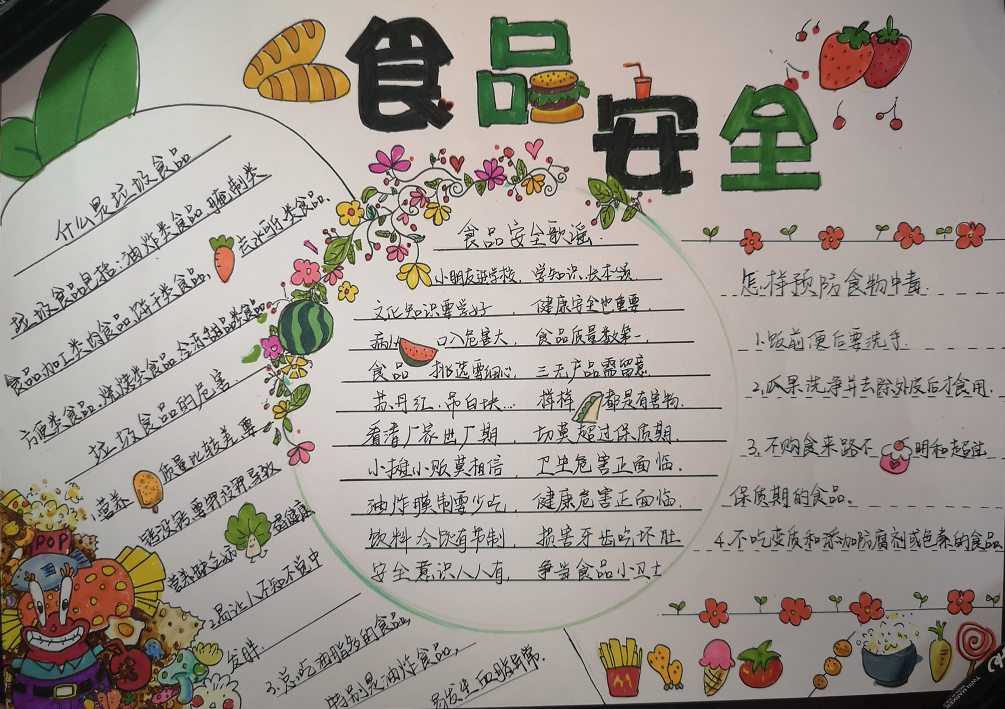 食品安全
什么是垃圾食品
垃圾食品包括:油炸类食品 腌制类
食品 加工类肉食品 饼干类食品
方便类食品 烧烤类食品 含有甜品类食品
垃圾食品的危害
1.营养 质量比较差 要
营养缺乏病
2.易让人不知不觉中
发胖
3.总吃油脂多的食品
特别是油炸食品,
易发生血脂异常.
食品安全歌谣.
小朋友进学校,学知识,长本领
文化知识要学好, 健康安全也重要.
口入危害大, 食品质量数第一,
食品 挑选要细心, 三无产品需留意
苏丹红.吊白块… 样样 都是有害物.
看清厂家出厂期, 切莫超过保质期.
小摊小贩莫相信, 卫生危害正面临.
油炸腌制要少吃, 健康危害正面临.
饮料冷饮有节制, 损害牙齿吃坏肚
安全意识人人有, 争当食品小卫士
怎样预防食物中毒.
1.饭前便后要洗手.
2.瓜果洗净并去除外皮后才食用.
3.不购食来路不 明和超过
保质期的食品。
4.不吃变质和添加防腐剂或色素的食品
POP